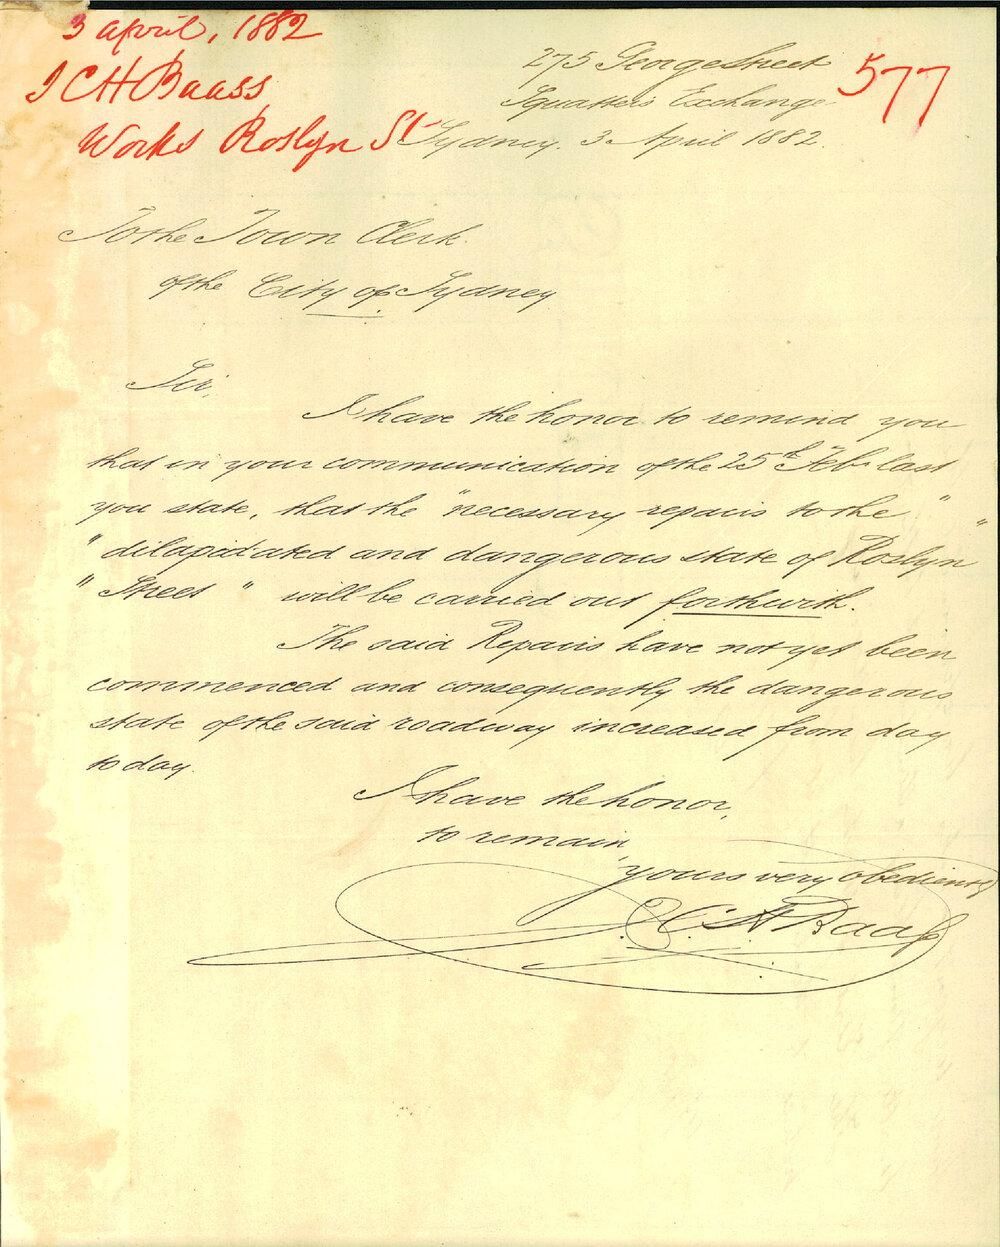 3 April, 1882
J C H Baass
Works Roslyn St
577
275 George Street
Squatters Exchange
Sydney. 3 April 1882.
To the Town Clerk.
of the City of Sydney
Sir,
I have the honor to remind you
that in your communication of the 25th Feb. last
you state, that the "necessary repairs to the "
" dilapidated and dangerous state of Roslyn "
" Street " will be carried out forthwith.
The said Repairs have not yet been
commenced and consequently the dangerous
state of the said roadway increased from day
to day.
I have the honor,
to remain,
yours very obediently
J. C. H. Baaß